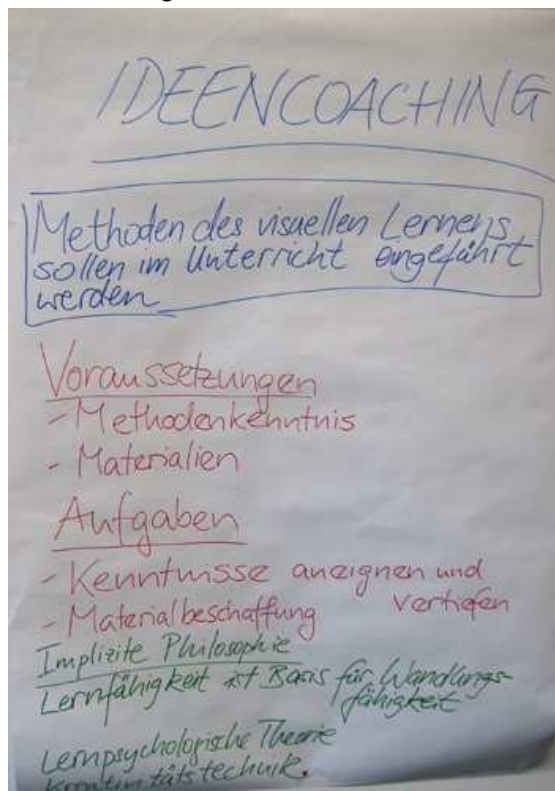 IDEENCOACHING
Methoden des visuellen Lernens
sollen im Unterricht eingeführt
werden
Voraussetzungen
- Methodenkenntnis
- Materialien
Aufgaben
- Kenntnisse aneignen und
vertiefen
- Materialbeschaffung
Implizite Philosophie
Lernfähigkeit ist Basis für Wandlungs-
fähigkeit
Lernpsychologische Theorie
Kreativitätstechnik.